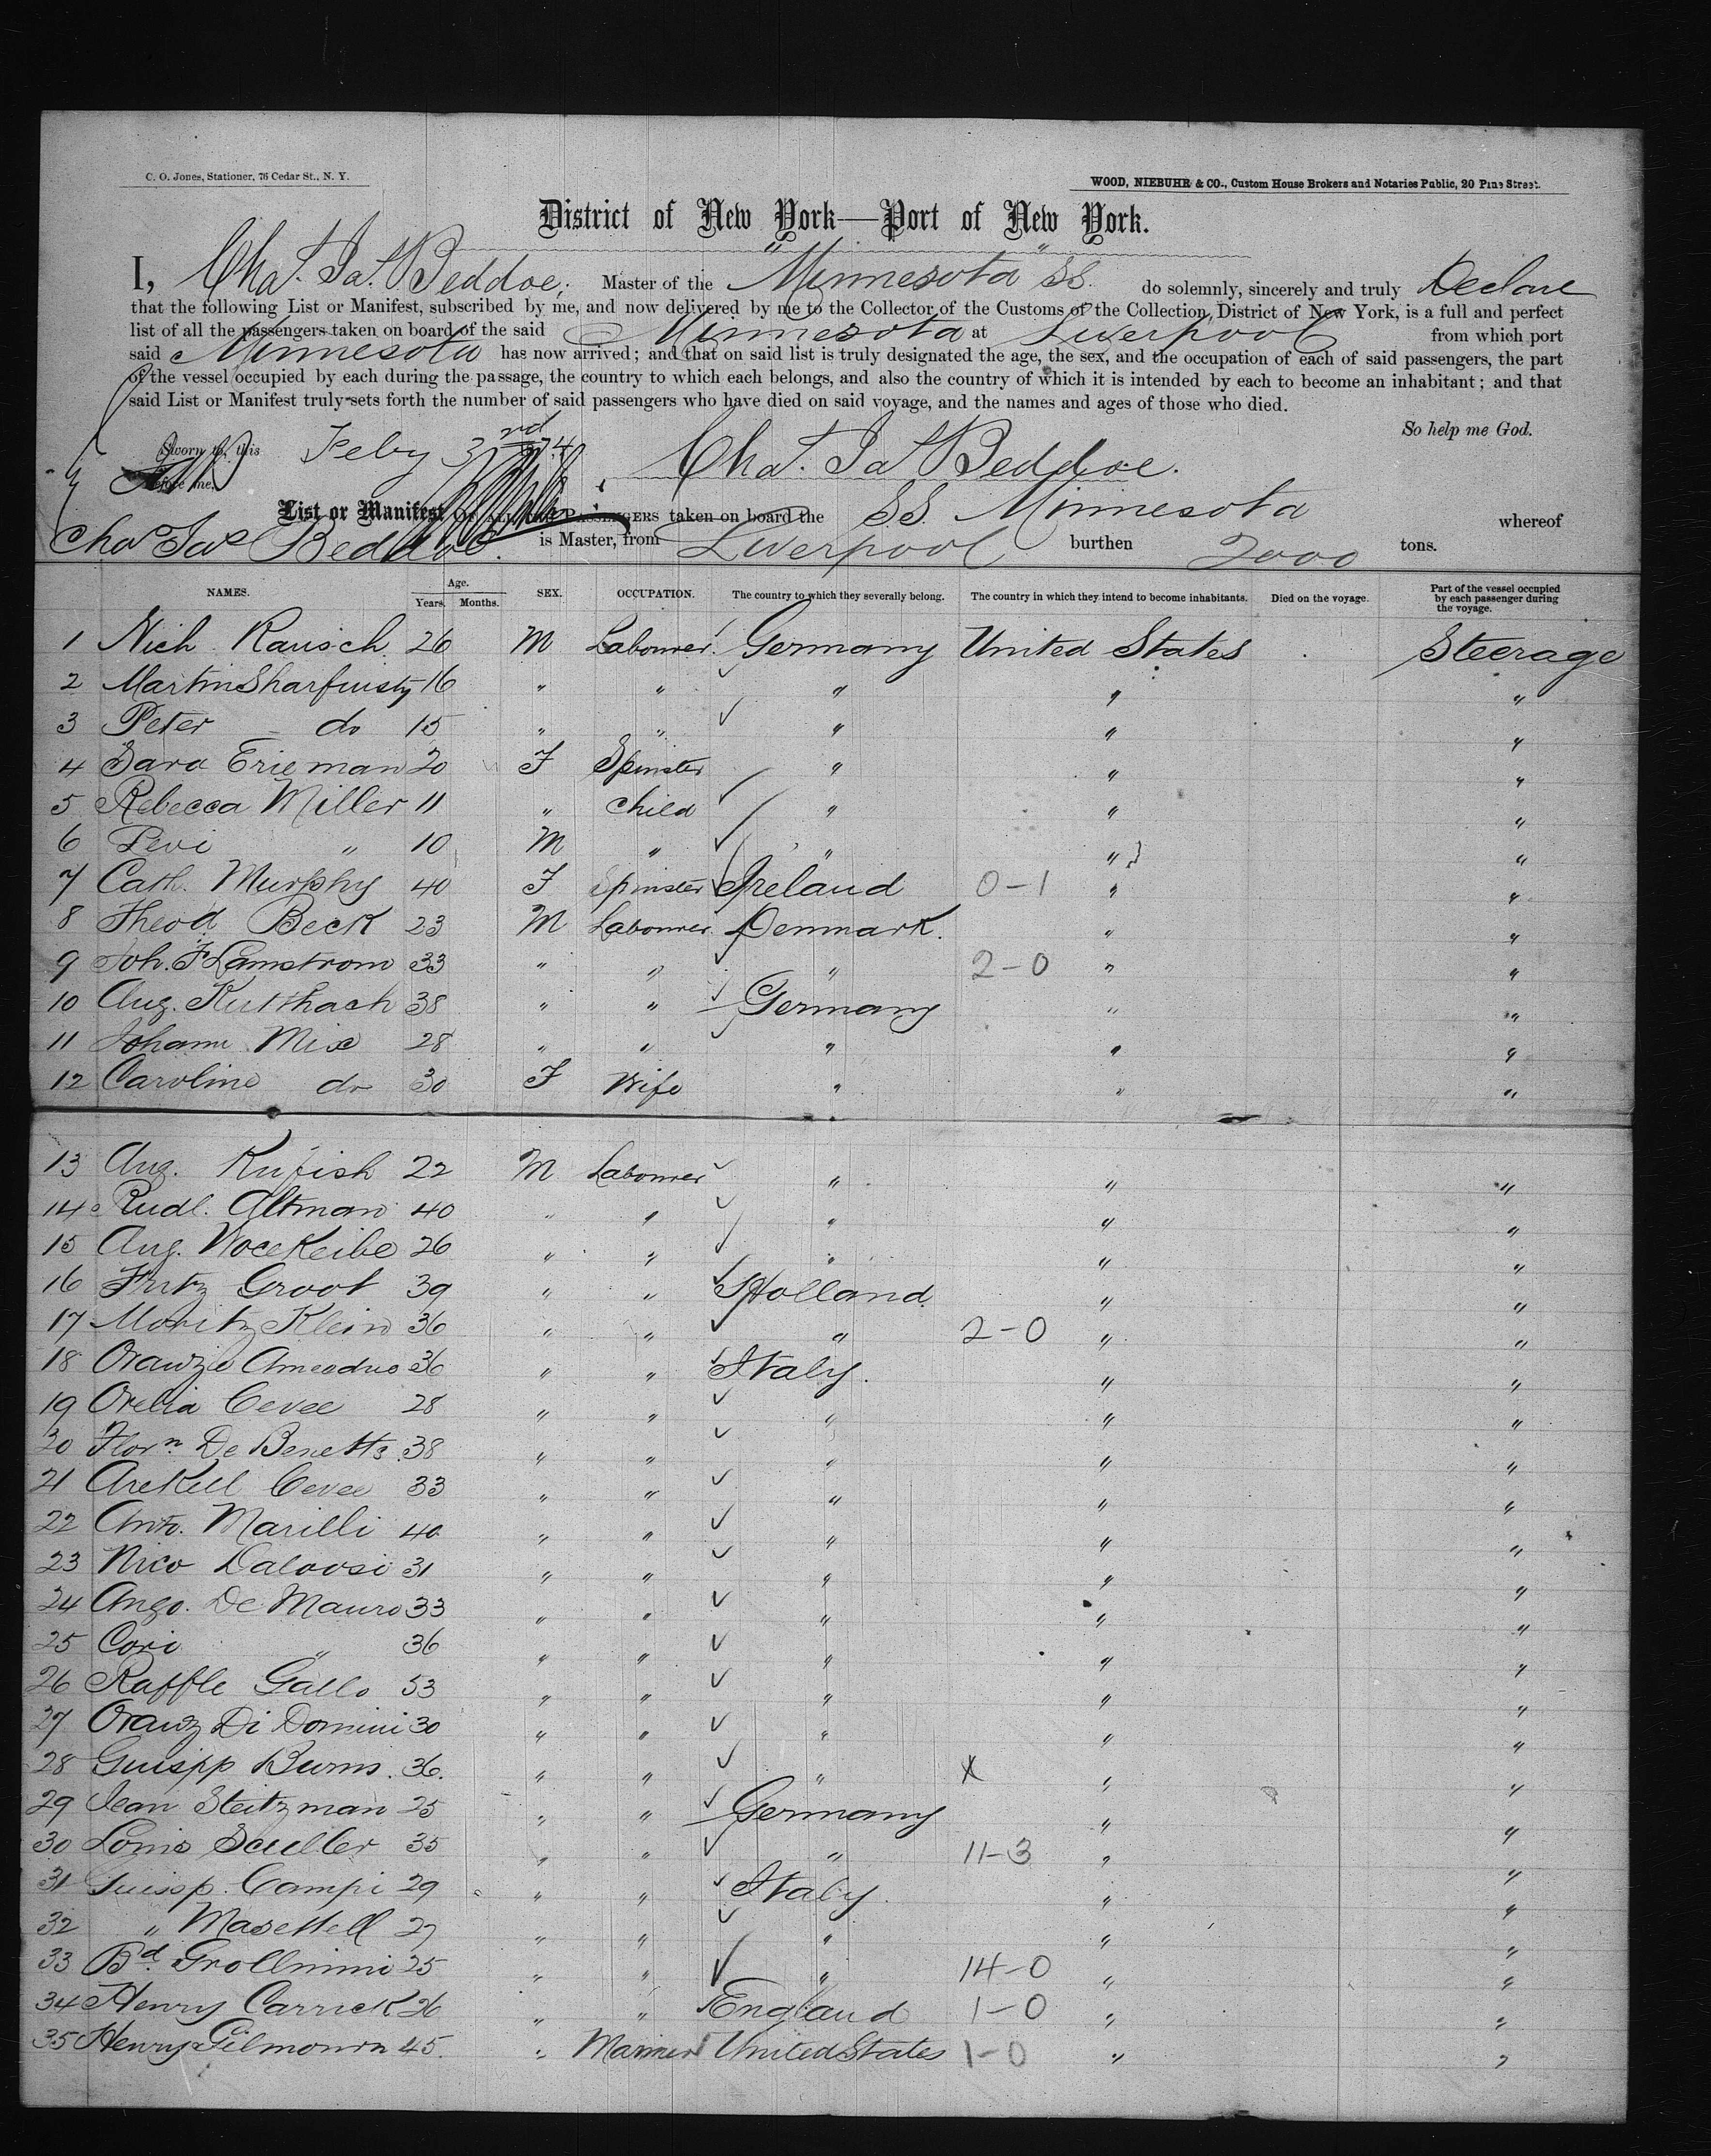 C. O. Jones, Stationer, 76 Cedar St., N. Y.
WOOD, NIEBUHR & CO., Custom House Brokers and Notaries Public, 20 Pine Street.
District of New York—Port of New York.
I, Chas. Jas. Beddoe, Master of the "Minnesota" SS. do solemnly, sincerely and truly Declare
that the following List or Manifest, subscribed by me, and now delivered by me to the Collector of the Customs of the Collection District of New York, is a full and perfect
list of all the passengers taken on board of the said Minnesota at Liverpool from which port
said Minnesota has now arrived; and that on said list is truly designated the age, the sex, and the occupation of each of said passengers, the part
of the vessel occupied by each during the passage, the country to which each belongs, and also the country of which it is intended by each to become an inhabitant; and that
said List or Manifest truly sets forth the number of said passengers who have died on said voyage, and the names and ages of those who died.
So help me God.
Sworn to, this Feby 3rd 1874 Chas. Jas Beddoe.
Before me,
List or Manifest OF ALL THE PASSENGERS taken on board the SS. Minnesota whereof
Chas Jas Beddoe. is Master, from Liverpool burthen 2000 tons.
NAMES. Age. Years. Months. SEX. OCCUPATION. The country to which they severally belong. The country in which they intend to become inhabitants. Died on the voyage. Part of the vessel occupied by each passenger during the voyage.
1 Nich Rausch 26 M Labourer Germany United States Steerage
2 Martin 16 " " " " "
3 Peter do 15 " " " " "
4 Sara Erieman 20 F Spinster " " "
5 Rebecca Miller 11 " Child " " "
6 Levi " 10 M " " " "
7 Cath. Murphy 40 F Spinster Ireland 0-1 " "
8 Theod Beck 23 M Labourer Denmark. " "
9 Joh. F Lamstrom 33 " " " 2-0 " "
10 Aug. Kutthach 38 " " Germany " "
11 Johann Mix 28 " " " " "
12 Caroline do 30 F Wife " " "
13 Aug. Kufish 22 M Labourer " " "
14 Rudl. Altman 40 " " " " "
15 Aug. Wocekeibe 26 " " " " "
16 Fritz Groot 39 " " Holland " "
17 Moritz Klein 36 " " " 2-0 " "
18 Oranzio Ameoduo 36 " " Italy. " "
19 Orelia Cevee 28 " " " " "
20 Florn. De Benetts 38 " " " " "
21 Arekell Cevee 33 " " " " "
22 Anto. Marilli 40 " " " " "
23 Nico Daloosi 31 " " " " "
24 Ango. De Mauro 33 " " " " "
25 Cori " 36 " " " " "
26 Raffle Gallo 53 " " " " "
27 Oranz Di Domini 30 " " " " "
28 Guispp Burns. 36. " " " X " "
29 Jean Steitzman 25 " " Germany " "
30 Louis Sculler 35 " " " 11-3 " "
31 Guissp. Campi 29 " " Italy. " "
32 " Masettell 27 " " " " "
33 Bd. Grollmini 25 " " " 14-0 " "
34 Henry Carrick 26 " " England 1-0 " "
35 Henry Gilmourn 45. " Mariner United States 1-0 " "